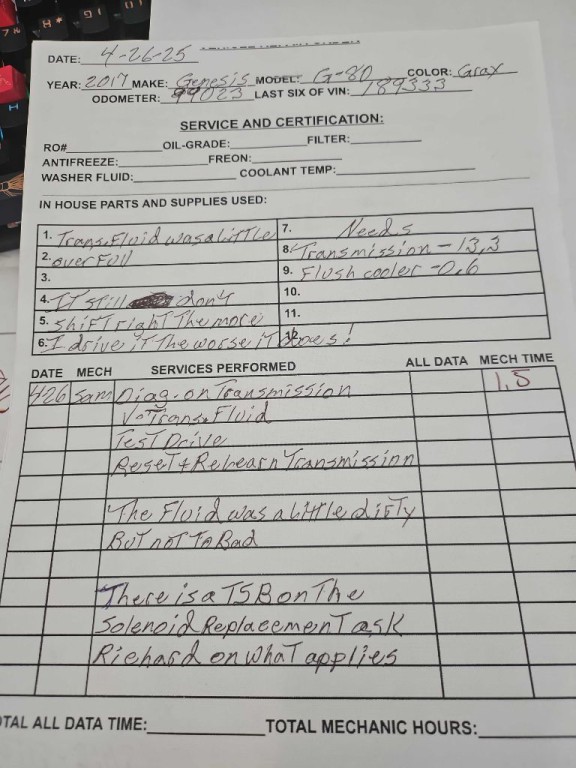 DATE: 4-26-25
YEAR: 2017 MAKE: Genesis MODEL: G-80 COLOR: Gray
ODOMETER: 99023 LAST SIX OF VIN: 189333
SERVICE AND CERTIFICATION:
RO# OIL-GRADE: FILTER:
ANTIFREEZE: FREON:
WASHER FLUID: COOLANT TEMP:
IN HOUSE PARTS AND SUPPLIES USED:
1. Trans. Fluid was a Little 7. Needs
2. over Full 8. Transmission - 13,3
3. 9. Flush cooler - 0.6
4. IT Still don't 10.
5. shift right The more 11.
6. I drive iT The worse iT does!
DATE MECH SERVICES PERFORMED ALL DATA MECH TIME
426 Sam Diag. on Transmission 1,5
V- Trans. Fluid
Test Drive
Reset + Relearn Transmission
The Fluid was a little dirty
But not To Bad
There is a TSB on The
Solenoid Replacement ask
Richard on what applies
TOTAL ALL DATA TIME: TOTAL MECHANIC HOURS: